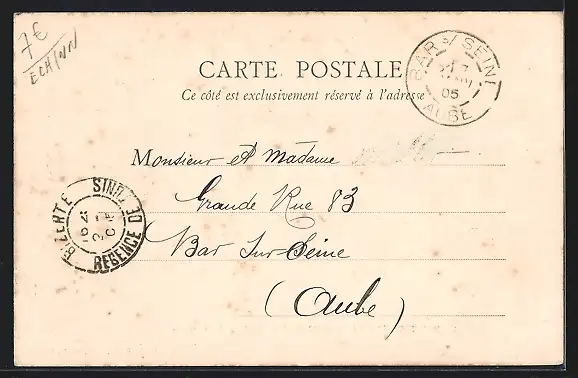 7€
ECH/NN
BAR S/ SEINE
05
AUBE
CARTE POSTALE
Ce côté est exclusivement réservé à l'adresse
Monsieur et Madame
Grande Rue 83
Bar Sur-Seine
(Aube)
BIZERTE
REGENCE DE TUNIS